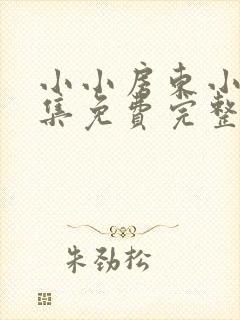 小小房东小
集免费完整
朱劲松